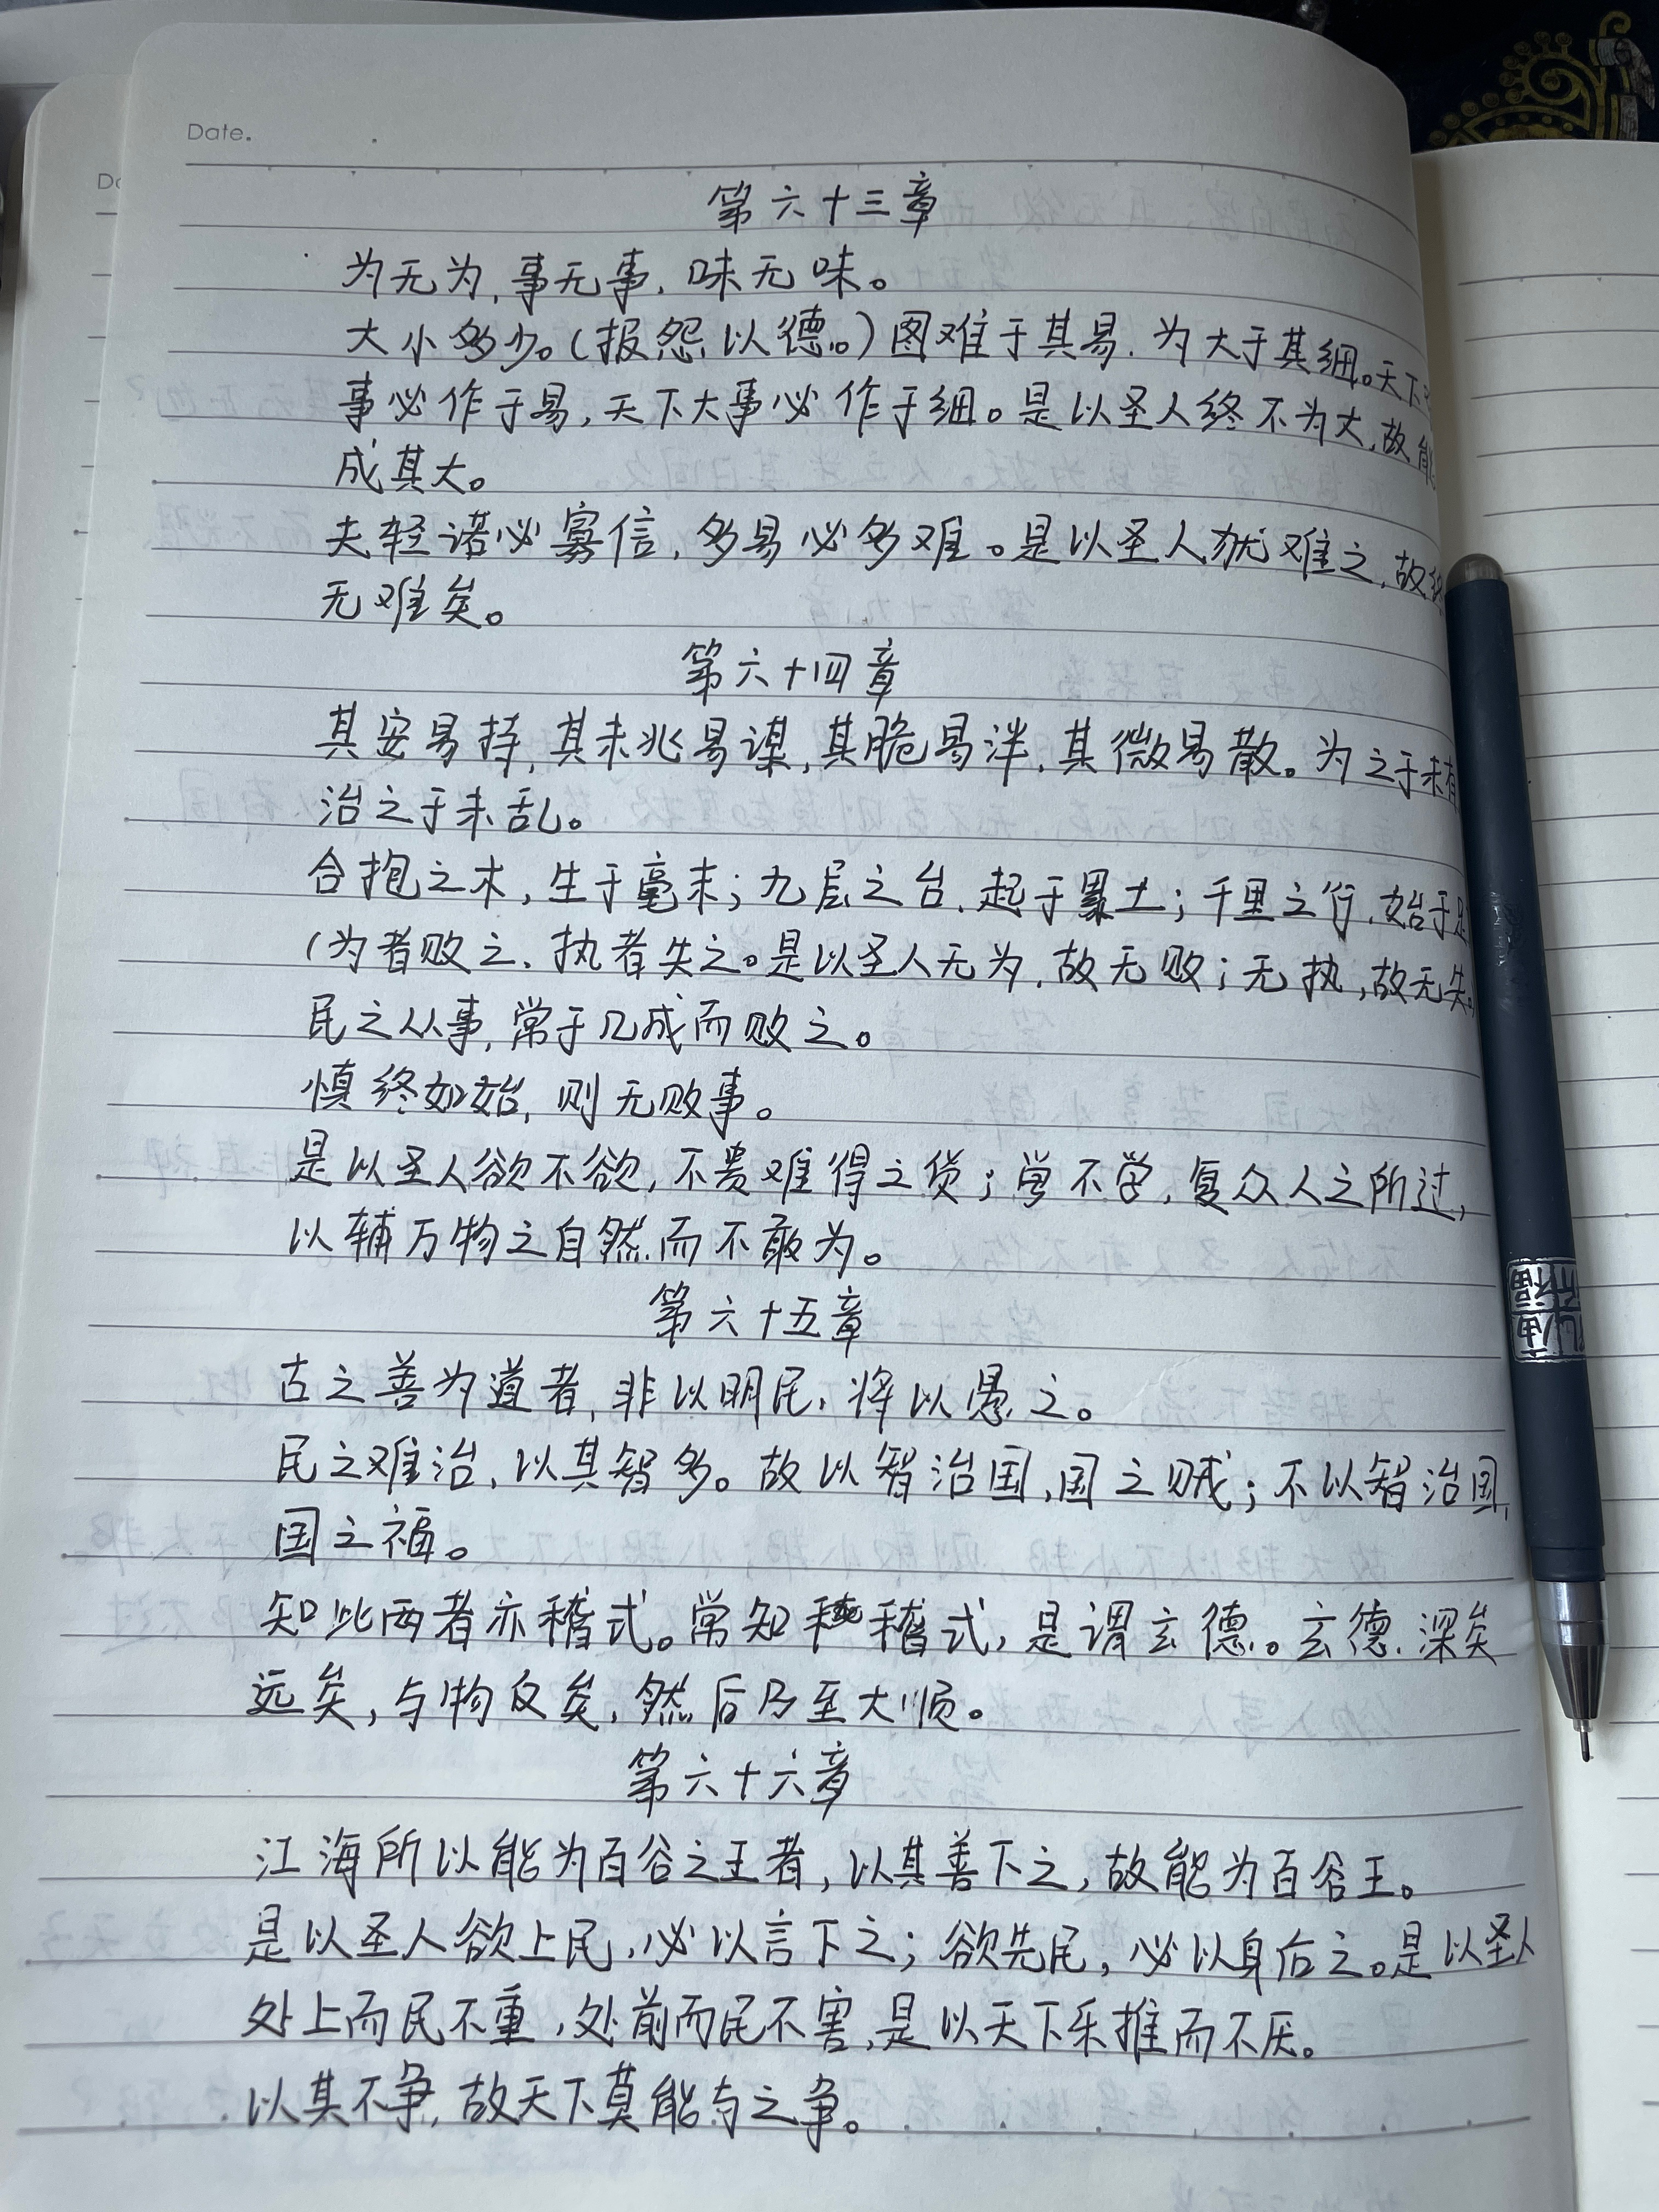 Date.
第六十三章
为无为,事无事,味无味。
大小多少。(报怨以德。)图难于其易,为大于其细。天下
事必作于易,天下大事必作于细。是以圣人终不为大,故能
成其大。
夫轻诺必寡信,多易必多难。是以圣人犹难之,故终
无难矣。
第六十四章
其安易持,其未兆易谋,其脆易泮,其微易散。为之于未有
治之于未乱。
合抱之木,生于毫末;九层之台,起于累土;千里之行,始于足
(为者败之,执者失之。是以圣人无为,故无败;无执,故无失。
民之从事,常于几成而败之。
慎终如始,则无败事。
是以圣人欲不欲,不贵难得之货;学不学,复众人之所过,
以辅万物之自然而不敢为。
第六十五章
古之善为道者,非以明民,将以愚之。
民之难治,以其智多。故以智治国,国之贼;不以智治国,
国之福。
知此两者亦稽式。常知稽式,是谓玄德。玄德深矣
远矣,与物反矣,然后乃至大顺。
第六十六章
江海所以能为百谷之王者,以其善下之,故能为百谷王。
是以圣人欲上民,必以言下之;欲先民,必以身后之。是以圣人
处上而民不重,处前而民不害,是以天下乐推而不厌。
以其不争,故天下莫能与之争。